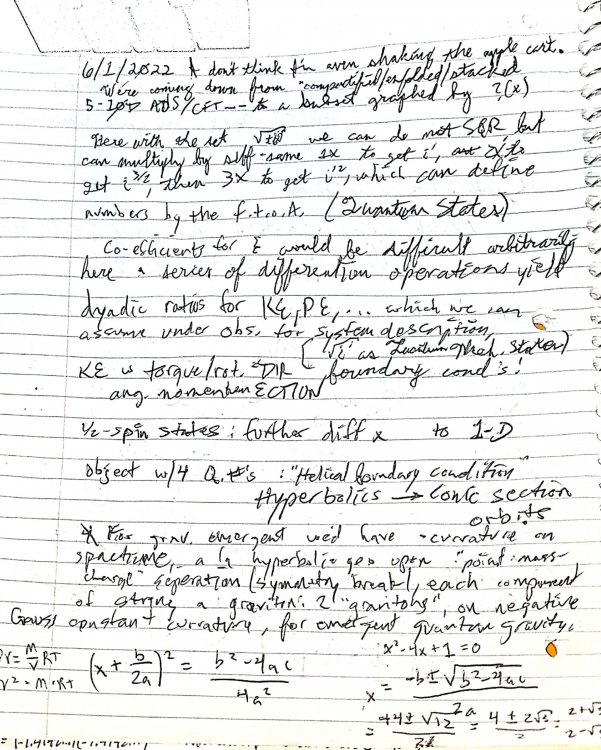 6/1/2022 I don't think I'm even shaking the apple cart.
We're coming down from "compactified/enfolded/stacked
5-10D ADS/CFT -- to a subset graphed by ?(x)
Here with the set we can do not SQR, but
can multiply by self-same 1x to get i', 2x to
get i^3/2, then 3x to get i'^2, which can define
numbers by the f.t.o.A. (Quantum States)
Co-efficients for would be difficult arbitrarily
here a series of differention operations yield
dyadic ratios for KE, PE, ... which we can
assume under obs. for system description,
(√i as Quantum Mech. States)
KE is torque/rot. DIR boundary cond's!
ang momentum ECTION
1/2-spin states: further diff x to 1-D
object w/4 Q.#'s: "Helical Boundary condition"
Hyperbolics → Conic section
orbits
* For grav. emergent we'd have -curvature on
spacetime, a hyperbolic geo upon "point-mass-
charge" seperation (symmetry break), each component
of string a graviton: 2 "gravitons", on negative
Gauss constant curvature, for emergent quantum gravity.
x²-4x+1=0
PV = m/V RT (x + b/2a)² = b²-4ac / 4a² x = -b±√b²-4ac / 2a
V² = M·RT
= +4±√12 / 2 = 4±2√3 / 2 = 2+√3
2-√3